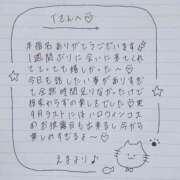 Tさんへ♡
本指名ありがとうございます
1週間ぶりに会いに来てくれて
とっても嬉しかった〜♡
今日も話したい事がありすぎ
て全然時間足りなかったけど
相変わらずの楽しさでした♡
9月ラストにはハロウィンコス
のお披露目も出来るし今から
楽しみすぎるよ〜♡
まきより♪